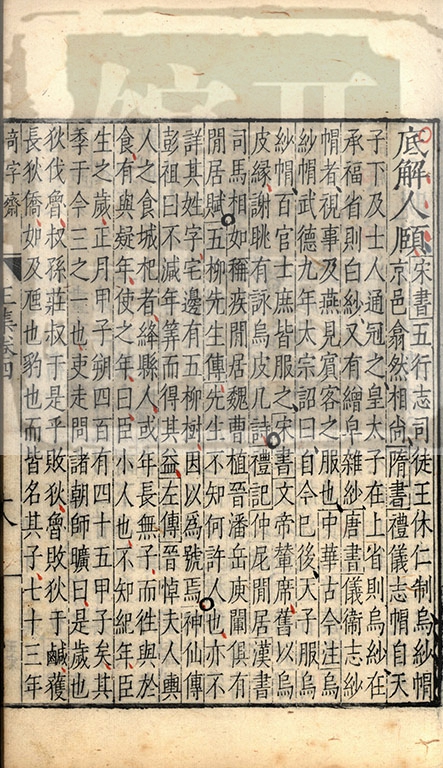 底解人頤宋書五行志司徒王休仁制烏紗帽
京邑翕然相尙隋書禮儀志帽自天
子下及士人通冠之皇太子在上省則烏紗在
承福省則白紗又有繒皁雜紗唐書儀衛志紗
帽者視事及燕見賓客之服也中華古今注烏
紗帽武德九年太宗詔曰自今已後天子服烏
紗帽百官士庶皆服之宋書文帝輦席舊以烏
皮緣謝眺有詠烏皮几詩禮記仲尼閒居漢書
司馬相如稱疾閒居魏曹植晉潘岳庾闡俱有
閒居賦五柳先生傳先生不知何許人也亦不
詳其姓字宅邊有五柳樹因以為號焉神仙傳
彭祖曰不減年筭而得其益左傳晉悼夫人輿
人之食城杞者絳縣人或年長無子而徃與於
食有與疑年使之年曰臣小人也不知紀年臣
生之歲正月甲子朔四百有四十五甲子矣其
季于今三之一也吏走問諸朝師曠曰是歲也
狄伐魯叔孫莊叔于是乎敗狄于鹹獲
長狄僑如及虺也豹也而皆名其子七十三年